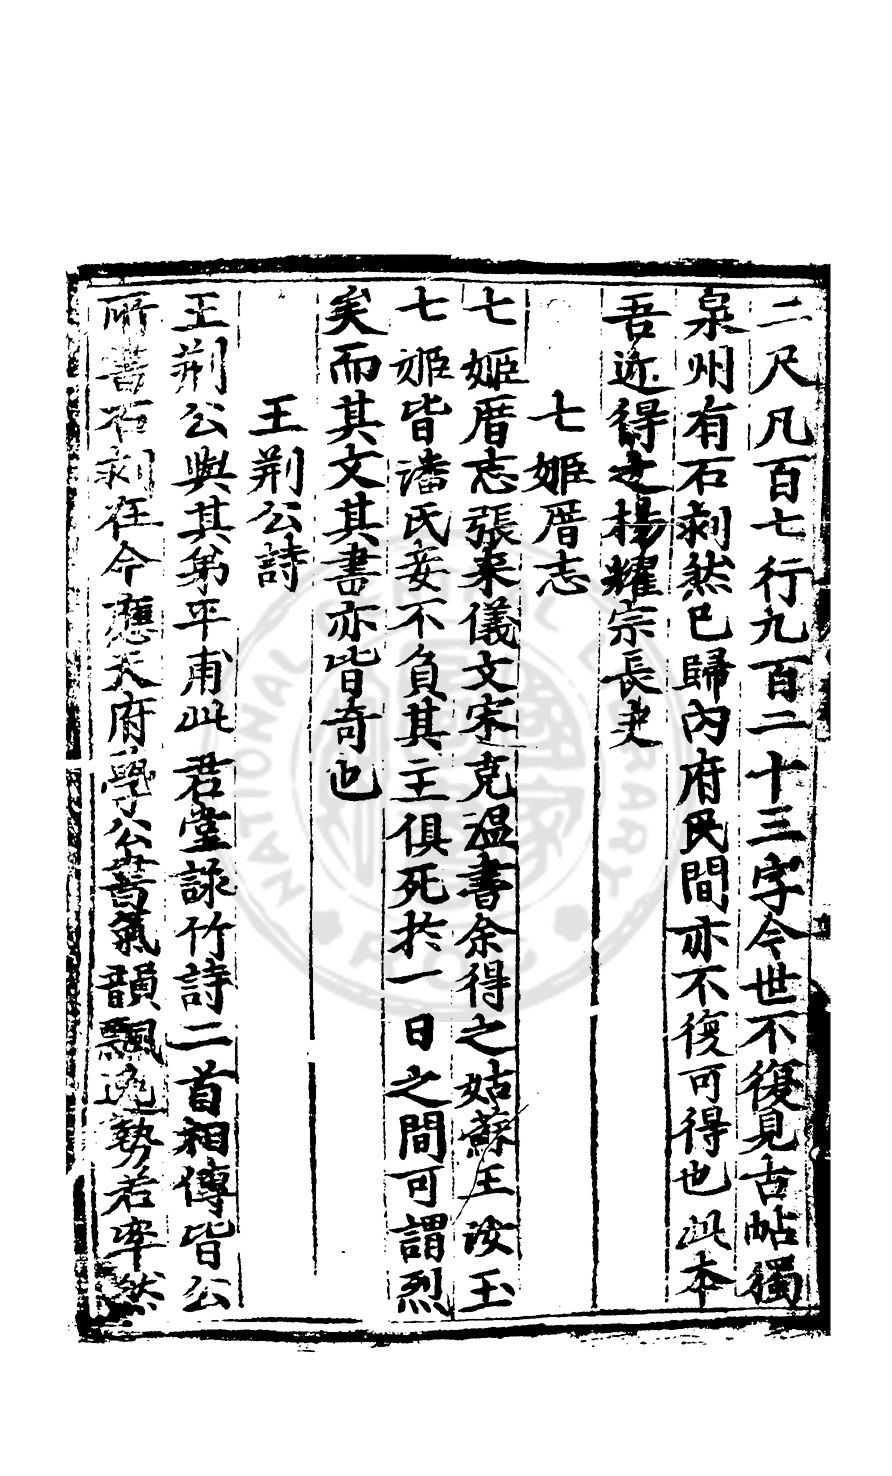 二尺凡百七行九百二十三字今世不復見古帖獨
泉州有石刻然已歸內府民間亦不復可得也此本
吾近得之楊耀宗長吏
七姬厝志
七姬厝志張来儀文宋克温書余得之姑蘇王汝玉
七姬皆潘氏妾不負其主俱死扵一日之間可謂烈
矣而其文其書亦皆奇也
王荆公詩
王荆公與其弟平甫此君堂詠竹詩二首相傳皆公
所書石刻在今應天府學公書氣韻飄逸勢若率然
NATIONAL CENTRAL LIBRARY